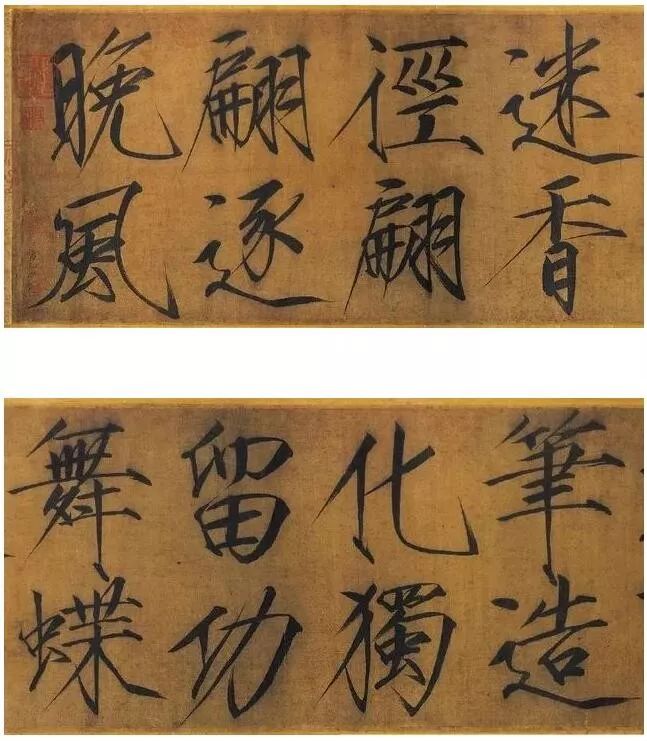 迷香
徑翩
翩逐
晚風
筆造
化獨
留功
舞蝶